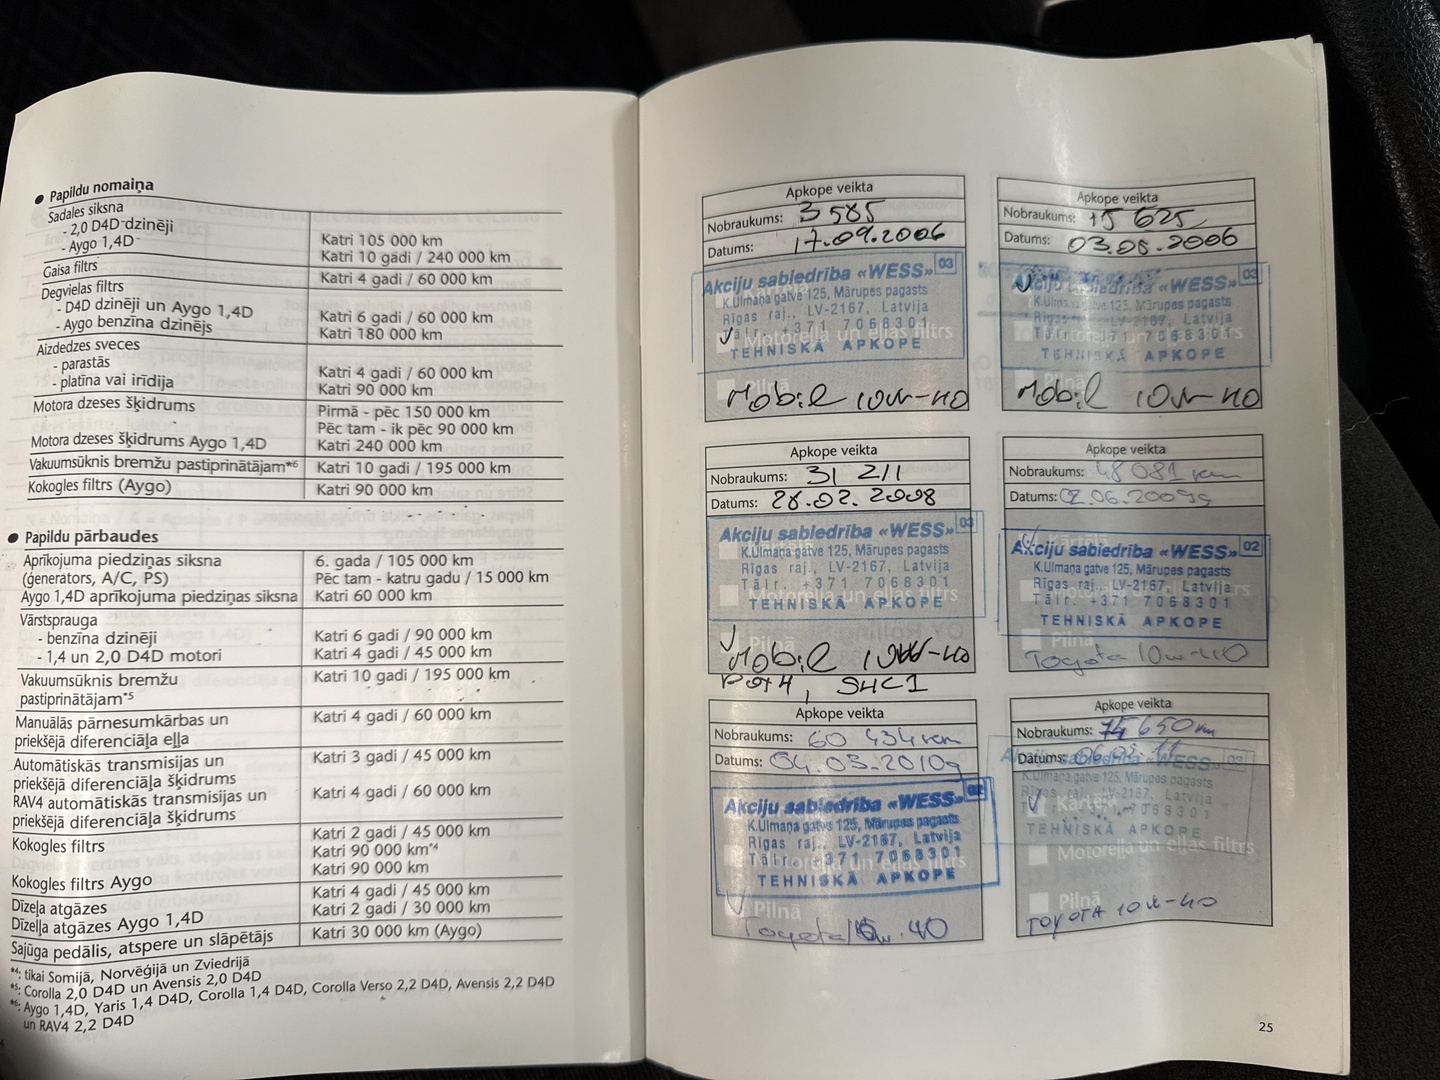 ● Papildu nomaiņa
Sadales siksna
- 2,0 D4D dzinēji Katri 105 000 km
- Aygo 1,4D Katri 10 gadi / 240 000 km
Gaisa filtrs Katri 4 gadi / 60 000 km
Degvielas filtrs
- D4D dzinēji un Aygo 1,4D Katri 6 gadi / 60 000 km
- Aygo benzīna dzinējs Katri 180 000 km
Aizdedzes sveces
- parastās Katri 4 gadi / 60 000 km
- platīna vai irīdija Katri 90 000 km
Motora dzeses šķidrums Pirmā - pēc 150 000 km
Pēc tam - ik pēc 90 000 km
Motora dzeses šķidrums Aygo 1,4D Katri 240 000 km
Vakuumsūknis bremžu pastiprinātājam*6 Katri 10 gadi / 195 000 km
Kokogles filtrs (Aygo) Katri 90 000 km
● Papildu pārbaudes
Aprīkojuma piedziņas siksna 6. gada / 105 000 km
(ģenerators, A/C, PS) Pēc tam - katru gadu / 15 000 km
Aygo 1,4D aprīkojuma piedziņas siksna Katri 60 000 km
Vārstsprauga
- benzīna dzinēji Katri 6 gadi / 90 000 km
- 1,4 un 2,0 D4D motori Katri 4 gadi / 45 000 km
Vakuumsūknis bremžu Katri 10 gadi / 195 000 km
pastiprinātājam*5
Manuālās pārnesumkārbas un Katri 4 gadi / 60 000 km
priekšējā diferenciāļa eļļa
Automātiskās transmisijas un Katri 3 gadi / 45 000 km
priekšējā diferenciāļa šķidrums
RAV4 automātiskās transmisijas un Katri 4 gadi / 60 000 km
priekšējā diferenciāļa šķidrums
Kokogles filtrs Katri 2 gadi / 45 000 km
Katri 90 000 km*4
Kokogles filtrs Aygo Katri 90 000 km
Dīzeļa atgāzes Katri 4 gadi / 45 000 km
Dīzeļa atgāzes Aygo 1,4D Katri 2 gadi / 30 000 km
Sajūga pedālis, atspere un slāpētājs Katri 30 000 km (Aygo)
*4: tikai Somijā, Norvēģijā un Zviedrijā
*5: Corolla 2,0 D4D un Avensis 2,0 D4D
*6: Aygo 1,4D, Yaris 1,4 D4D, Corolla 1,4 D4D, Corolla Verso 2,2 D4D, Avensis 2,2 D4D
un RAV4 2,2 D4D
Apkope veikta
Nobraukums: 3 585
Datums: 17.09.2006
Akciju sabiedrība «WESS» 03
K.Ulmaņa gatve 125, Mārupes pagasts
Rīgas raj., LV-2167, Latvija
Tālr. +371 7068301
Motoreļļa un eļļas filtrs
TEHNISKĀ APKOPE
Pilnā
Mobil 10W-40
Apkope veikta
Nobraukums: 15 625
Datums: 03.08.2006
Akciju sabiedrība «WESS» 03
K.Ulmaņa gatve 125, Mārupes pagasts
Rīgas raj., LV-2167, Latvija
Tālr. +371 7068301
TEHNISKĀ APKOPE
Pilnā
Mobil 10W-40
Apkope veikta
Nobraukums: 31 211
Datums: 28.02.2008
Akciju sabiedrība «WESS» 03
K.Ulmaņa gatve 125, Mārupes pagasts
Rīgas raj., LV-2167, Latvija
Tālr. +371 7068301
Motoreļļa un eļļas filtrs
TEHNISKĀ APKOPE
Pilnā
Mobil 10W-40
SHC1
Apkope veikta
Nobraukums: 48 081 km
Datums: 02.06.2009g
Kārtējā
Akciju sabiedrība «WESS» 02
K.Ulmaņa gatve 125, Mārupes pagasts
Rīgas raj., LV-2167, Latvija
Tālr. +371 7068301
TEHNISKĀ APKOPE
Pilnā
Toyota 10w-40
Apkope veikta
Nobraukums: 60 434 km
Datums: 04.03.2010g
Akciju sabiedrība «WESS» 02
K.Ulmaņa gatve 125, Mārupes pagasts
Rīgas raj., LV-2167, Latvija
Tālr. +371 7068301
TEHNISKĀ APKOPE
Pilnā
Toyota 10w-40
Apkope veikta
Nobraukums: 74 650 km
Datums:
Akciju sabiedrība «WESS» 02
K.Ulmaņa gatve 125, Mārupes pagasts
Rīgas raj., LV-2167, Latvija
Kārtējā 7068301
TEHNISKĀ APKOPE
Motoreļļa un eļļas filtrs
Pilnā
TOYOTA 10w-40
25